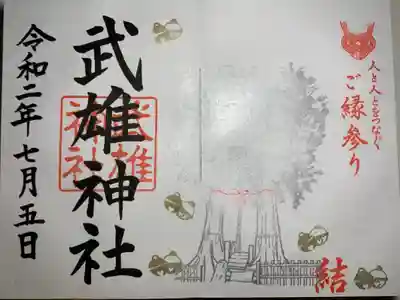 人と人とをつなぐ
ご縁参り
結
武雄神社
武雄
神社
令和二年七月五日